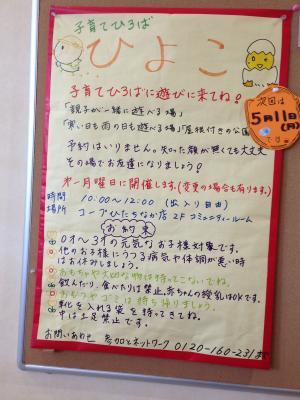 子育てひろば
ひよこ
子育てひろばに遊びに来てね!
「親子が一緒に遊べる場」
「寒い日も雨の日も遊べる場」「屋根付きの公園」
予約はいりません。知った顔が無くても大丈夫
その場でお友達になりましょう!
次回は
5月11日(月)
です
第一月曜日に開催します。(変更の場合も有ります。)
時間 10:00〜12:00 (出入り自由)
場所 コープひたちなか店 2F コミュニティールーム
お約束
0才〜3才の元気なお子様対象です。
他のお子様にうつる病気や体調が悪い時
はお休みしましょう。
おもちゃや大切な物は持ってこないでね。
飲んだり、食べたりは禁止。赤ちゃんの授乳はOKです。
おむつやゴミは持ち帰りましょう。
靴を入れる袋を持ってきてね。
中は土足禁止です。
お問いあわせ 参加とネットワーク 0120-160-231まで